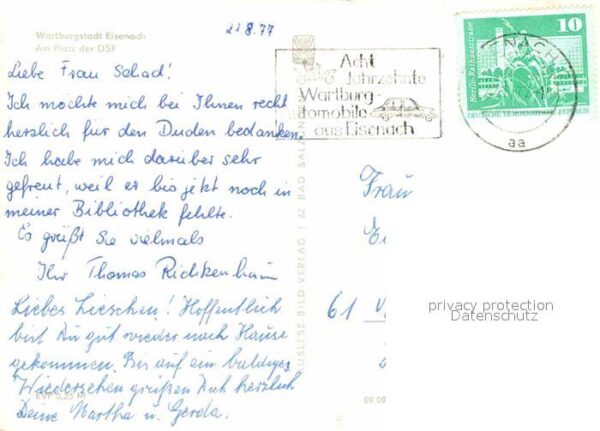 Wartburgstadt Eisenach
Am Platz der DSF
21 8.77
Liebe Frau Schad!
Ich möchte mich bei Ihnen recht
herzlich für den Duden bedanken.
Ich habe mich darüber sehr
gefreut, weil er bis jetzt noch in
meiner Bibliothek fehlte.
Es grüßt Sie vielmals
Ihr Thomas
Liebes Lieschen! Hoffentlich
bist Du gut wieder nach Hause
gekommen. Bis auf ein baldiges
Wiedersehen grüßen Dich herzlich
Deine Martha u. Gerda.
EVP 0,25 M
AUSLESE-BILD-VERLAG / 62 BAD SALZUN
Acht
Jahrzehnte
Wartburg-
tomobile
aus Eisenach
ENACH
aa
10
Berlin-Rathausstraße
DEUTSCHE DEMOKRATISCHE REPUBLIK
Frau
61
privacy protection
Datenschutz
09 09